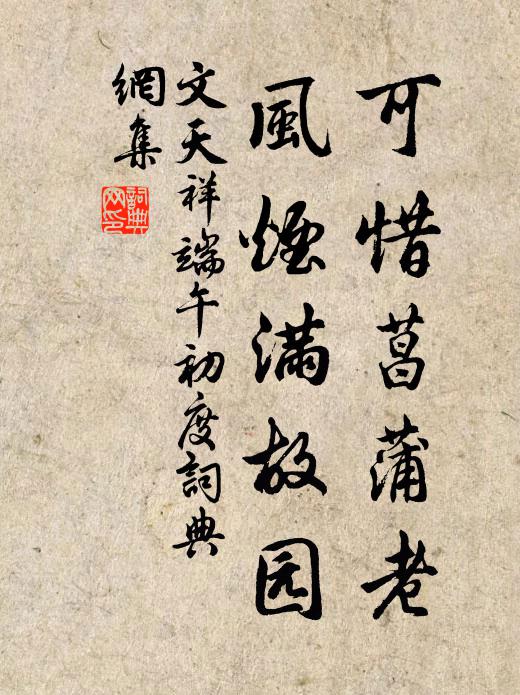 可惜菖蒲老
風煙滿故园
文天祥端午初度詞典
網集
詞典網印